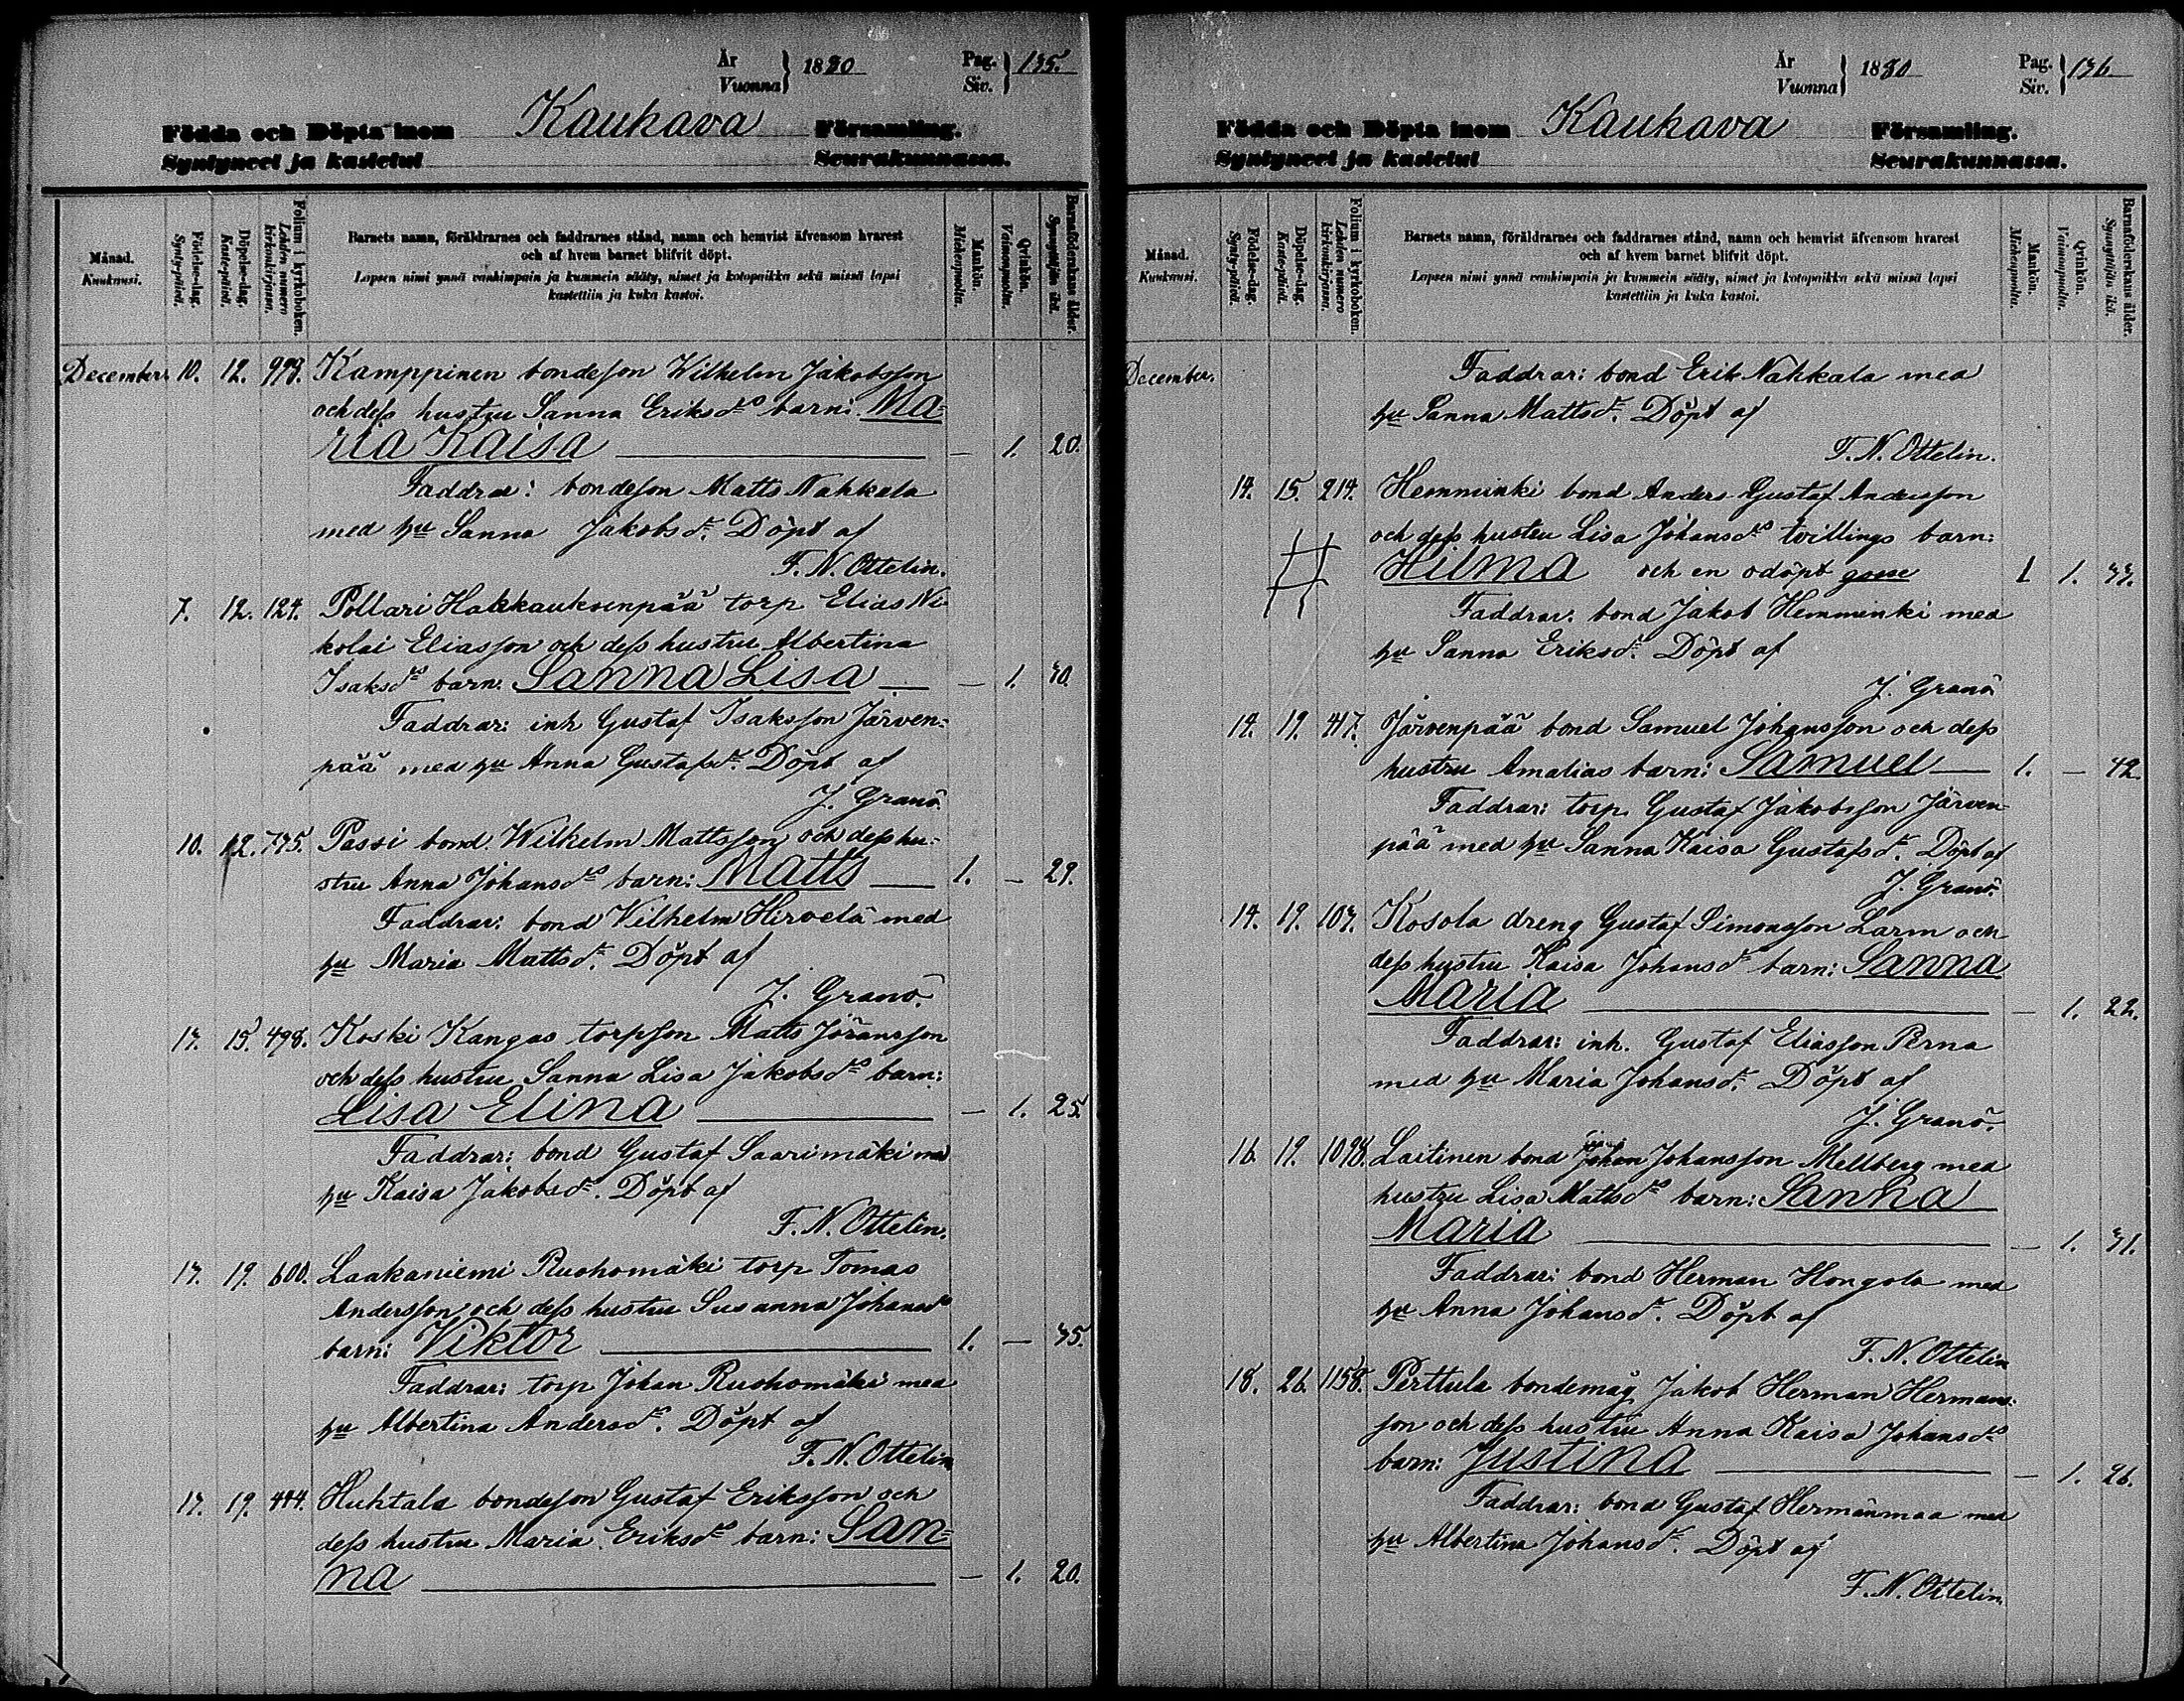 År
Vuonna } 1880 Pag.
Siv. } 135.
Födda och Döpta inom Kauhava Församling.
Syntyneet ja kastetut Seurakunnassa.
Månad.
Kuukausi.
Födelse-dag.
Synty-päivä.
Döpelse-dag.
Kaste-päivä.
Folium i kyrkoboken.
Lehden numero
kirkonkirjassa.
Barnets namn, föräldrarnes och faddrarnes stånd, namn och hemvist äfvensom hvarest
och af hvem barnet blifvit döpt.
Lapsen nimi ynnä vanhimpain ja kummein sääty, nimet ja kotopaikka sekä missä lapsi
kastettiin ja kuka kastoi.
Mankön.
Miehenpuolta.
Qvinkön.
Vaimonpuolta.
Barnaföderskans ålder.
Synnyttäjän ikä.
December. 10. 12. 993. Kamppinen bondeson Wilhelm Jakobsson
och dess hustru Sanna Eriksds barn: Ma-
ria Kaisa — 1. 20.
Faddrar: bondeson Matts Nahkala
med hu Sanna Jakobsdr. Döpt af
F. N. Ottelin.
7. 12. 124. Pollari Hakkaukoenpää torp Elias Ni-
kolai Eliasson och dess hustru Albertina
Isaksds barn. Sanna Lisa — — 1. 30.
Faddrar: inh Gustaf Isaksson Järven-
pää med hu Anna Gustafsdr. Döpt af
J. Granö.
10. 12. 735. Passi bond. Wilhelm Mattsson och dess hu-
stru Anna Johansds barn: Matts — 1. — 29.
Faddrar: bond Vilhelm Hirvelä med
hu Maria Mattsdr. Döpt af
J. Granö.
13. 15. 498. Koski Kangas torpson Matts Jöransson
och dess hustru Sanna Lisa Jakobsds barn:
Lisa Elina — — 1. 25.
Faddrar: bond Gustaf Saarimäki med
hu Kaisa Jakobsdr. Döpt af
F. N. Ottelin.
13. 19. 600. Laakaniemi Ruohomäki torp Tomas
Andersson och dess hustru Susanna Johansds
barn: Viktor — 1. — 35.
Faddrar: torp Johan Ruohomäki med
hu Albertina Andersdr. Döpt af
F. N. Ottelin
13. 19. 444. Huhtala bondeson Gustaf Eriksson och
dess hustru Maria Eriksds barn: San-
na — — 1. 20.
År
Vuonna } 1880 Pag.
Siv. } 136
Födda och Döpta inom Kauhava Församling.
Syntyneet ja kastetut Seurakunnassa.
Månad.
Kuukausi.
Födelse-dag.
Synty-päivä.
Döpelse-dag.
Kaste-päivä.
Folium i kyrkoboken.
Lehden numero
kirkonkirjassa.
Barnets namn, föräldrarnes och faddrarnes stånd, namn och hemvist äfvensom hvarest
och af hvem barnet blifvit döpt.
Lapsen nimi ynnä vanhimpain ja kummein sääty, nimet ja kotopaikka sekä missä lapsi
kastettiin ja kuka kastoi.
Mankön.
Miehenpuolta.
Qvinkön.
Vaimonpuolta.
Barnaföderskans ålder.
Synnyttäjän ikä.
December. Faddrar: bond Erik Nahkala med
hu Sanna Mattsdr. Döpt af
F. N. Ottelin.
14. 15. 214. Hemminki bond Anders Gustaf Andersson
och dess hustru Lisa Johansds tvillings barn:
Hilma och en odöpt gosse 1 1. 33.
Faddrar. bond Jakob Hemminki med
hu Sanna Eriksdr. Döpt af
J. Granö
14. 19. 417. Järvenpää bond Samuel Johansson och dess
hustru Amalias barn: Samuel — 1. — 42.
Faddrar: torp. Gustaf Jakobsson Järven-
pää med hu Sanna Kaisa Gustafsdr. Döpt af
J. Granö.
14. 19. 103. Kosola dreng Gustaf Simonsson Larm och
dess hustru Kaisa Johansdr barn: Sanna
Maria — — 1. 22.
Faddrar: inh. Gustaf Eliasson Perna
med hu Maria Johansdr. Döpt af
J. Granö.
16. 19. 1098. Laitinen bond Johan Johansson Mellberg med
hustru Lisa Mattsds barn: Sanna
Maria — — 1. 31.
Faddrar: bond Herman Hongola med
hu Anna Johansdr. Döpt af
F. N. Ottelin
18. 26. 1158. Perttula bondemåg Jakob Herman Hermans-
son och dess hustru Anna Kaisa Johansds
barn: Justina — — 1. 26.
Faddrar: bond Gustaf Hermänmaa med
hu Albertina Johansdr. Döpt af
F. N. Ottelin.